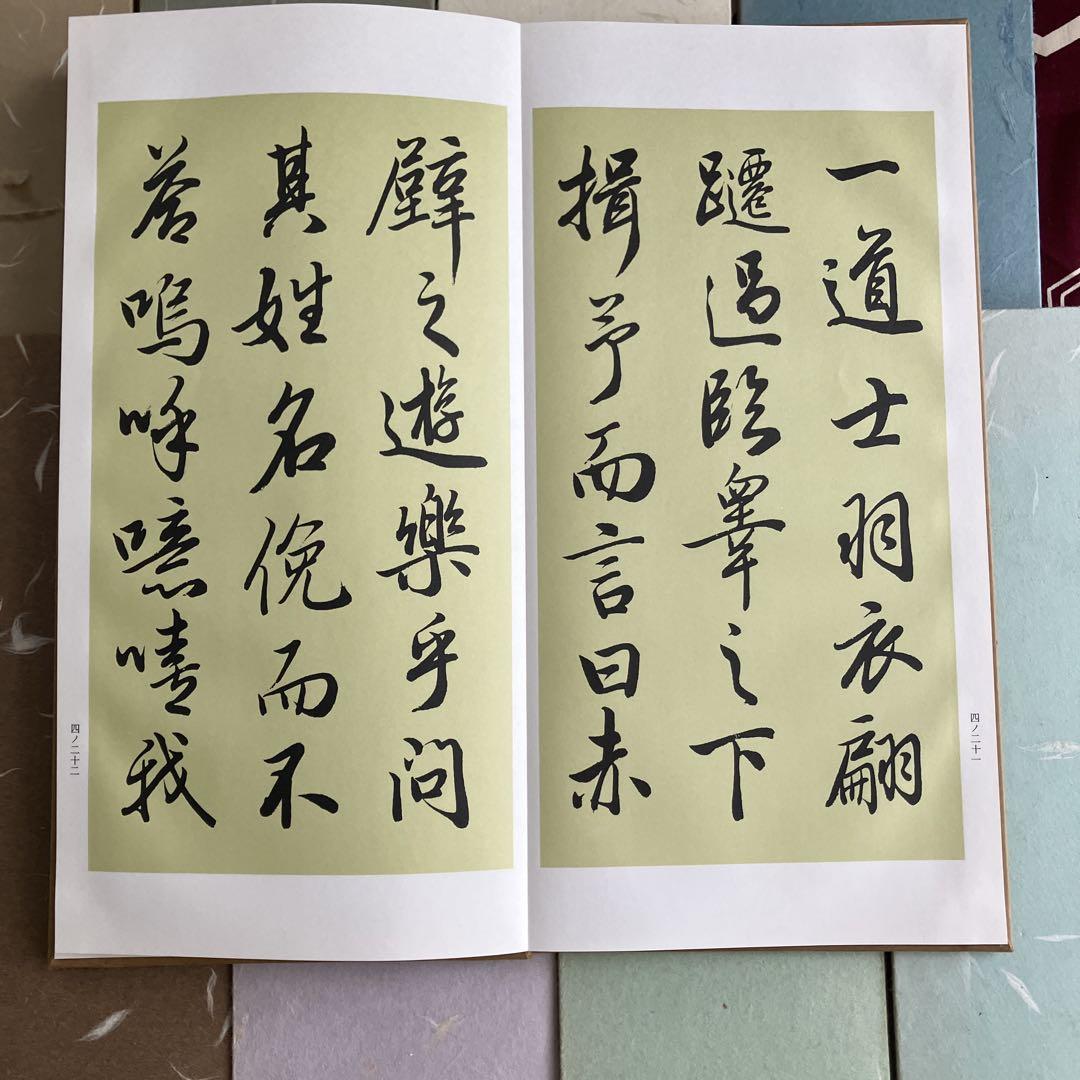 一道士羽衣翩
躚過臨皋之下
揖予而言曰赤
四ノ二十一
壁之遊樂乎問
其姓名俛而不
荅嗚呼噫嘻我
四ノ二十二